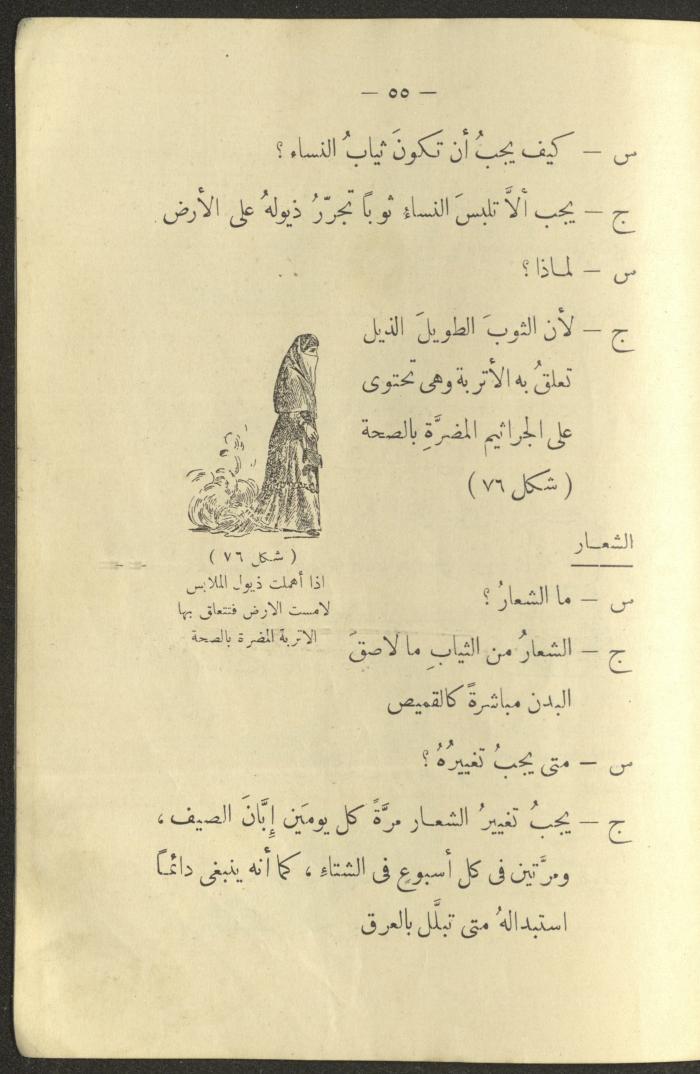 — ٥٥ —
س — كيف يجبُ أن تكونَ ثيابُ النساء ؟
ج — يجب ألاَّ تلبسَ النساءُ ثوباً تجرّرُ ذيولهُ على الأرض
س — لماذا ؟
ج — لأن الثوبَ الطويلَ الذيل
تعلقُ به الأتربة وهى تحتوى
على الجراثيم المضرَّةِ بالصحة
( شكل ٧٦ )
( شكل ٧٦ )
اذا أهملت ذيول الملابس
لامست الارض فتتعلق بها
الاتربة المضرة بالصحة
الشعار
س — ما الشعارُ ؟
ج — الشعارُ من الثيابِ ما لاصقَ
البدن مباشرةً كالقميص
س — متى يجبُ تغييرُهُ ؟
ج — يجبُ تغييرُ الشعار مرَّةً كل يومَين إبَّانَ الصيف ،
ومرَّتين فى كل أسبوعٍ فى الشتاءِ ، كما أنه ينبغى دائماً
استبدالهُ متى تبلَّل بالعرق